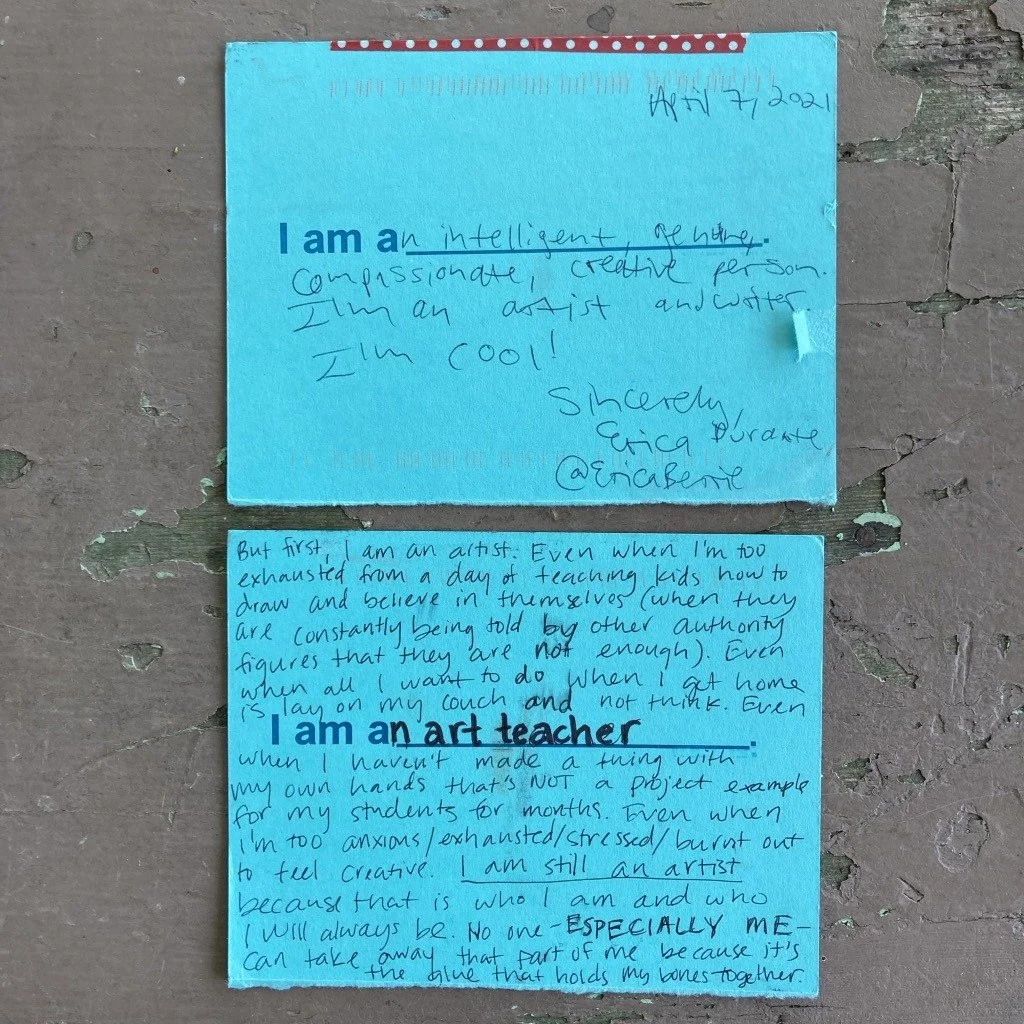 April 7, 2021
I am an intelligent, genuine,
compassionate, creative person.
I'm an artist and writer.
I'm cool!
Sincerely,
Erica Durante
@EricaBerrie
But first, I am an artist. Even when I'm too
exhausted from a day of teaching kids how to
draw and believe in themselves (when they
are constantly being told by other authority
figures that they are not enough). Even
when all I want to do when I get home
is lay on my couch and not think. Even
I am an art teacher.
when I haven't made a thing with
my own hands that's NOT a project example
for my students for months. Even when
I'm too anxious/exhausted/stressed/burnt out
to feel creative. I am still an artist
because that is who I am and who
I will always be. No one - ESPECIALLY ME -
can take away that part of me because it's
the glue that holds my bones together.